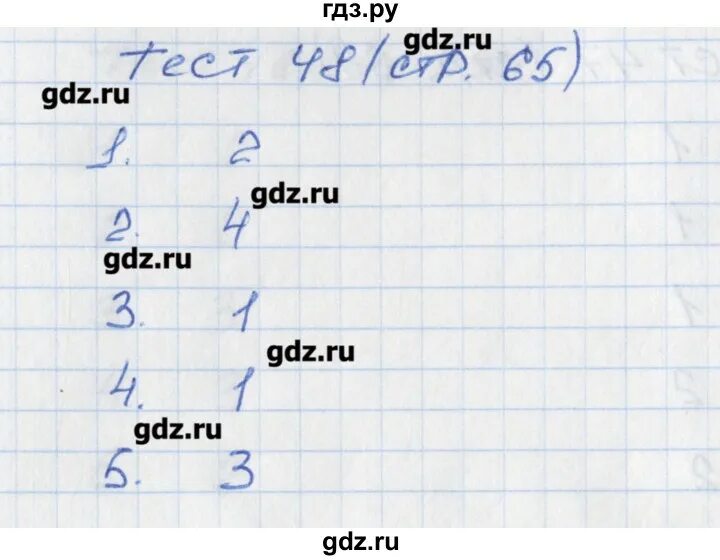 гдз.ру
Тест 48 (стр. 65)
gdz.ru
gdz.ru
1. 2
gdz.ru
2. 4
gdz.ru
3. 1
gdz.ru
4. 1
gdz.ru
5. 3
gdz.ru